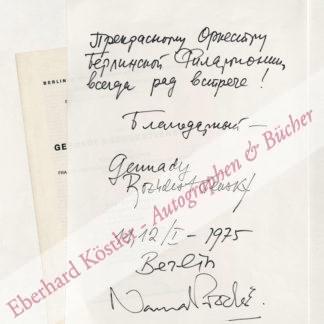 BERLIN
GE
FRA
Прекрасному Оркестру
Берлинской Филармонии,
всегда рад встрече!
Благодарный —
Gennady
Rozhdestvensky
12/I - 1975
Berlin
Eberhard Köstler - Autographen & Bücher